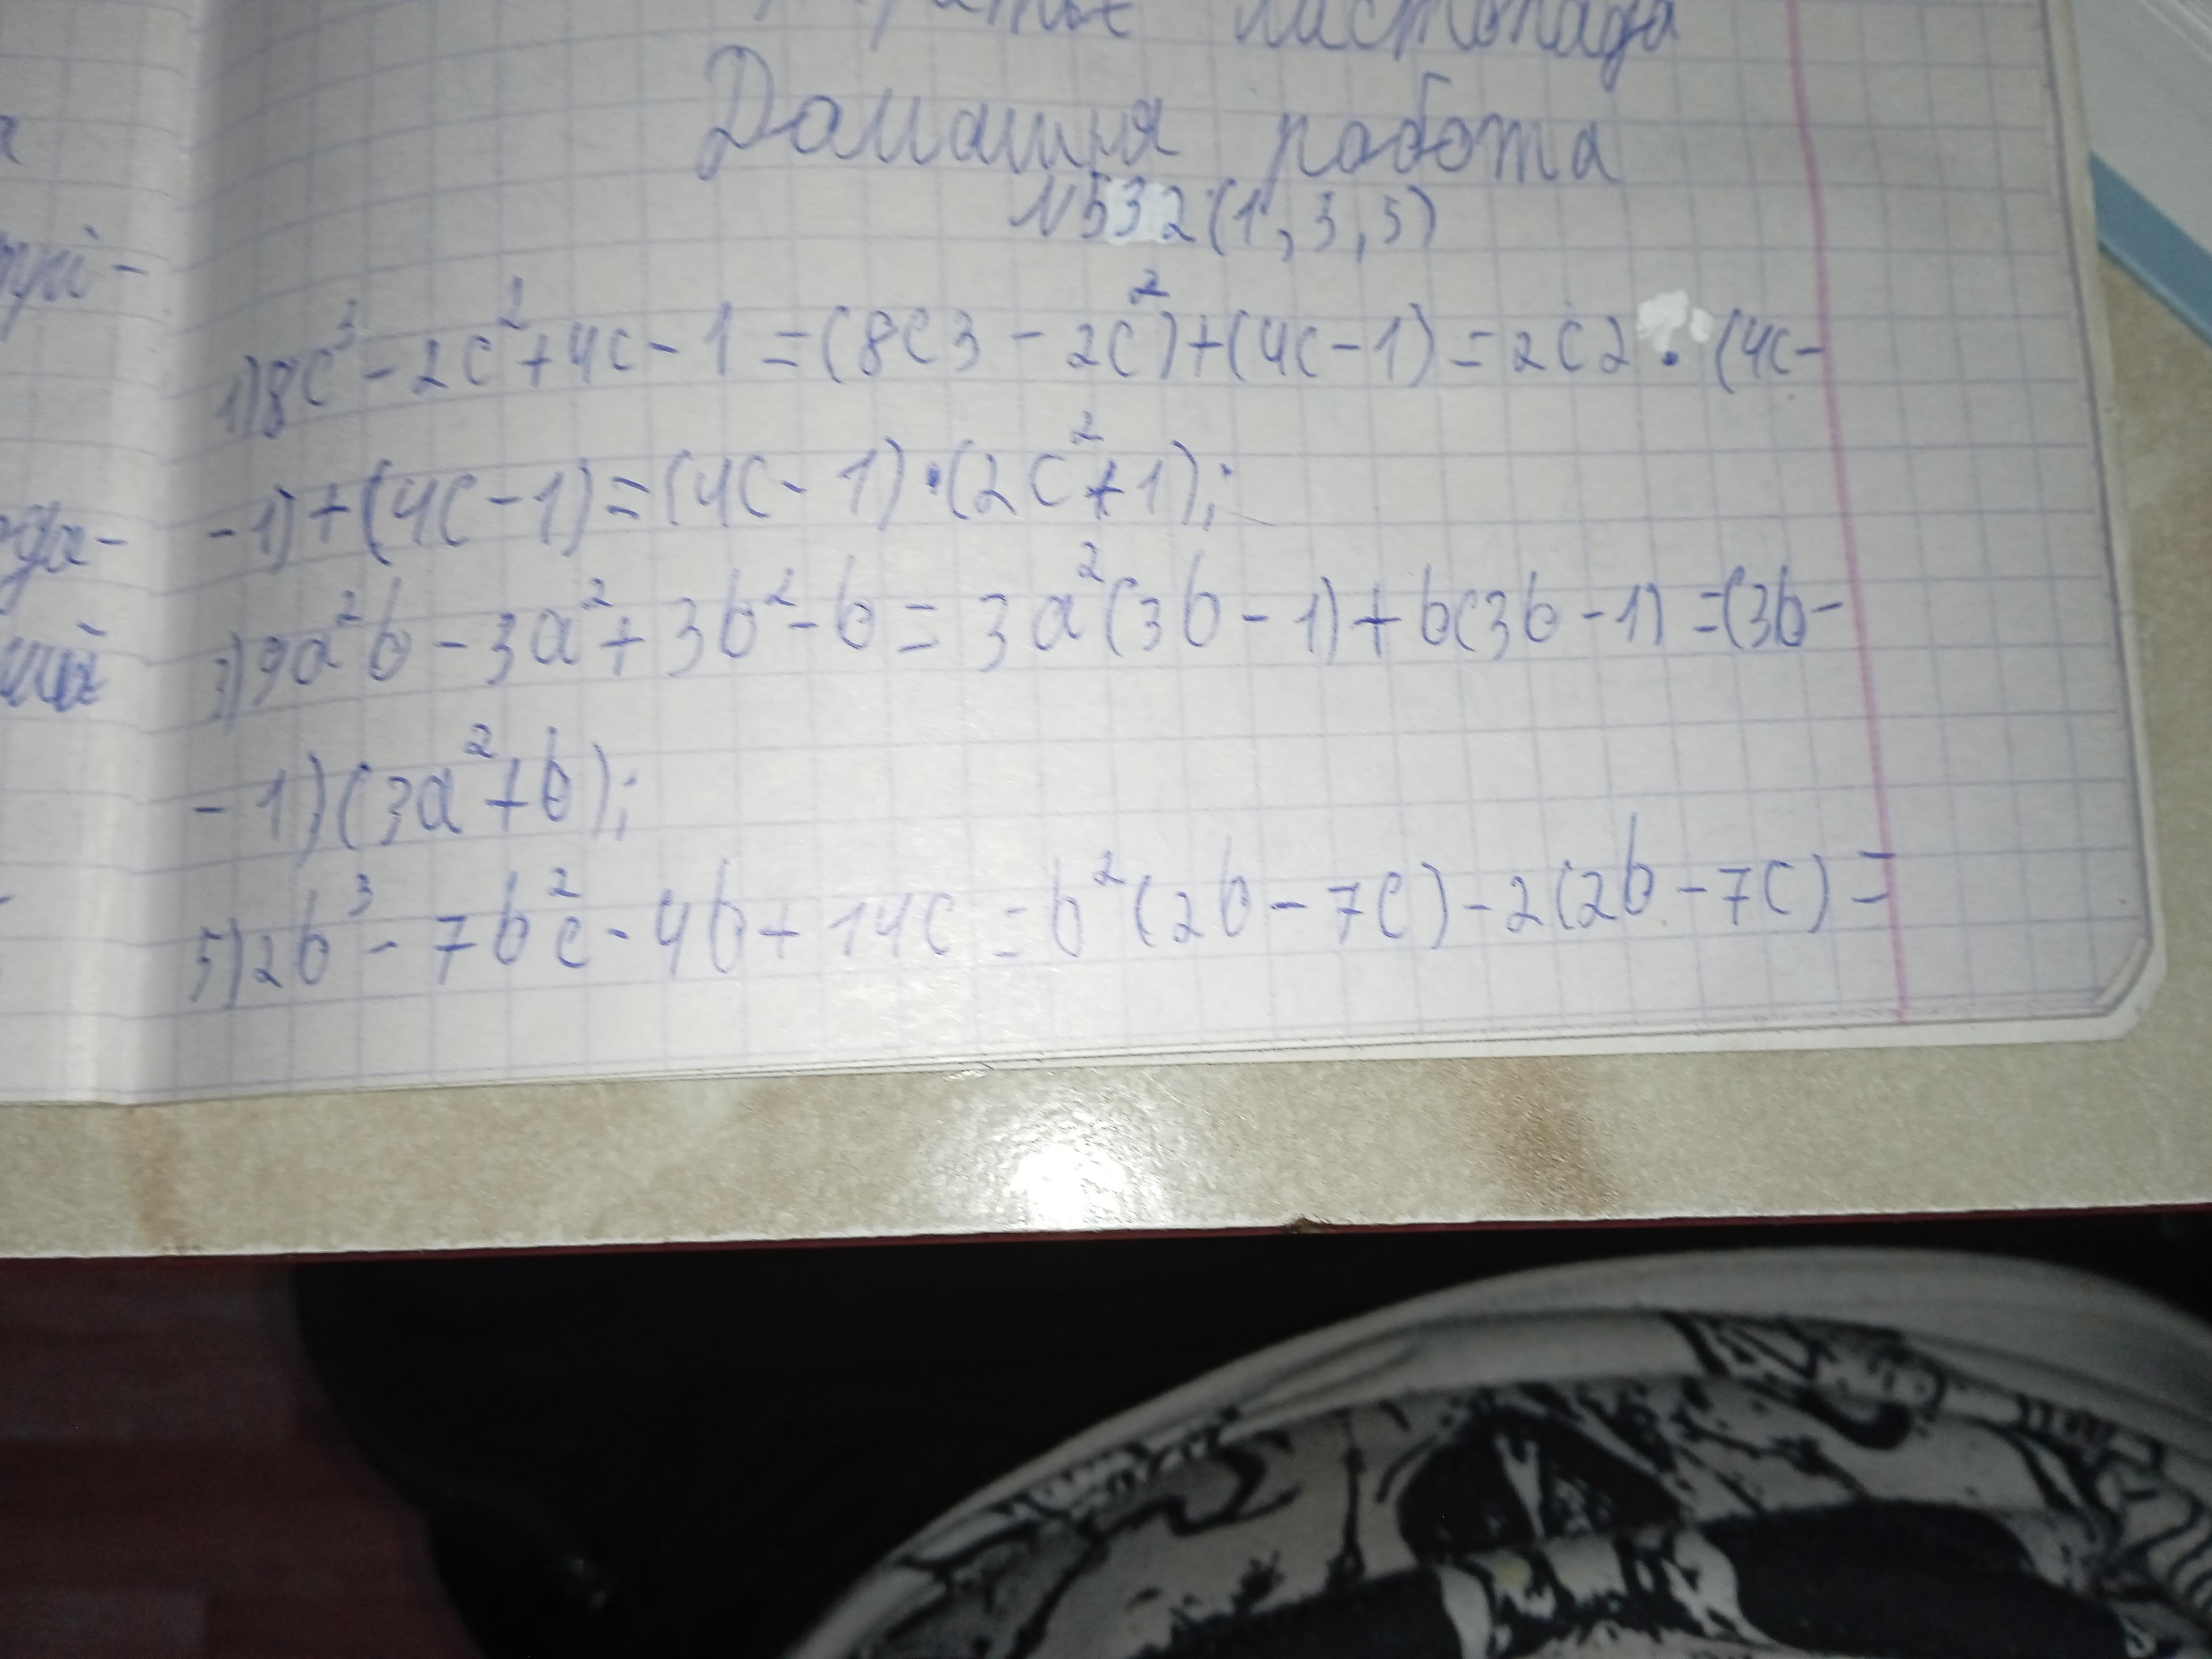 листопада
Домашня робота
№532(1, 3, 5)
1) 8c³ - 2c² + 4c - 1 = (8c3 - 2c²) + (4c - 1) = 2c2 · (4c -
- 1) + (4c - 1) = (4c - 1) · (2c² + 1);
3) 9a²b - 3a² + 3b² - b = 3a²(3b - 1) + b(3b - 1) = (3b -
- 1)(3a² + b);
5) 2b³ - 7b²c - 4b + 14c = b²(2b - 7c) - 2(2b - 7c) =